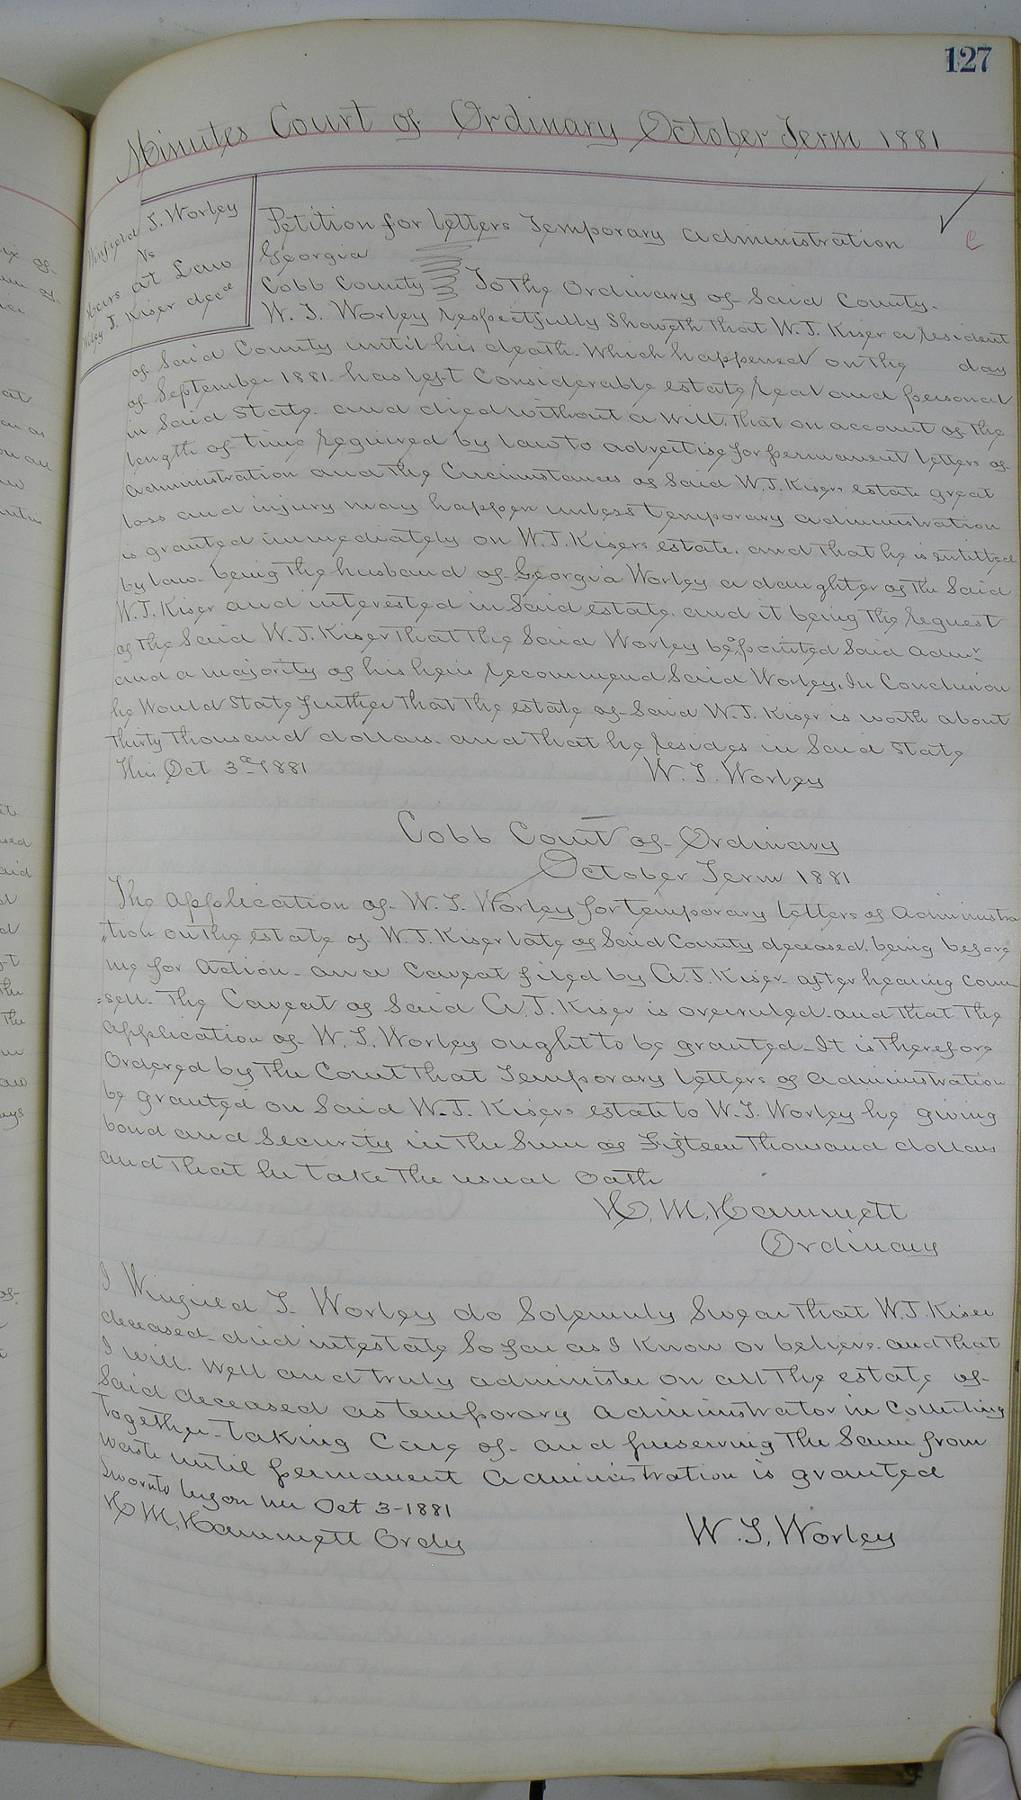 127
Minutes Court of Ordinary October Term 1881
Winfield S. Worley
Vs
Heirs at Law
Wiley J. Kiser decd
Petition for Letters Temporary Administration
Georgia
Cobb County To the Ordinary of Said County.
W. S. Worley respectfully Showeth that W. J. Kiser a resident
of Said County until his death. Which happened on the day
of September 1881. has left Considerable estate real and personal
in Said State. and died without a will. that on account of the
length of time required by law to advertise for permanent letters of
administration and the Circumstances of Said W. J. Kisers estate great
loss and injury may happen unless temporary administration
is granted immediately on W. J. Kisers estate. and that he is entitled
by law. being the husband of Georgia Worley a daughter of the Said
W. J. Kiser and interested in Said estate. and it being the request
of the Said W. J. Kiser that the Said Worley be appointed Said admr
and a majority of his heirs recommend Said Worley. In Conclusion
he would State further that the estate of Said W. J. Kiser is worth about
thirty thousand dollars. and that he resides in Said State
This Oct 3rd 1881
W. S. Worley
Cobb Court of Ordinary
October Term 1881
The application of W. S. Worley for temporary letters of administra
"tion on the estate of W. J. Kiser late of Said County deceased. being before
me for action. and a Caveat filed by A. J. Kiser. after hearing coun
=sell. The Caveat of Said A. J. Kiser is overruled and that the
application of W. S. Worley ought to be granted. It is therefore
Ordered by the Court that Temporary letters of administration
be granted on Said W. J. Kisers estate to W. S. Worley he giving
bond and Security in the Sum of Fifteen thousand dollars
and that he take the usual Oath
H. M. Hammett
Ordinary
I Winfield S. Worley do Solemnly Swear that W. J. Kiser
deceased died intestate So far as I Know or believe. and that
I will. well and truly administer on all the estate of
Said deceased as temporary administrator in Collecting
together. taking Care of and preserving the Same from
waste until permanent administration is granted
Sworn to before me Oct 3-1881
H M. Hammett Ordy
W. S. Worley